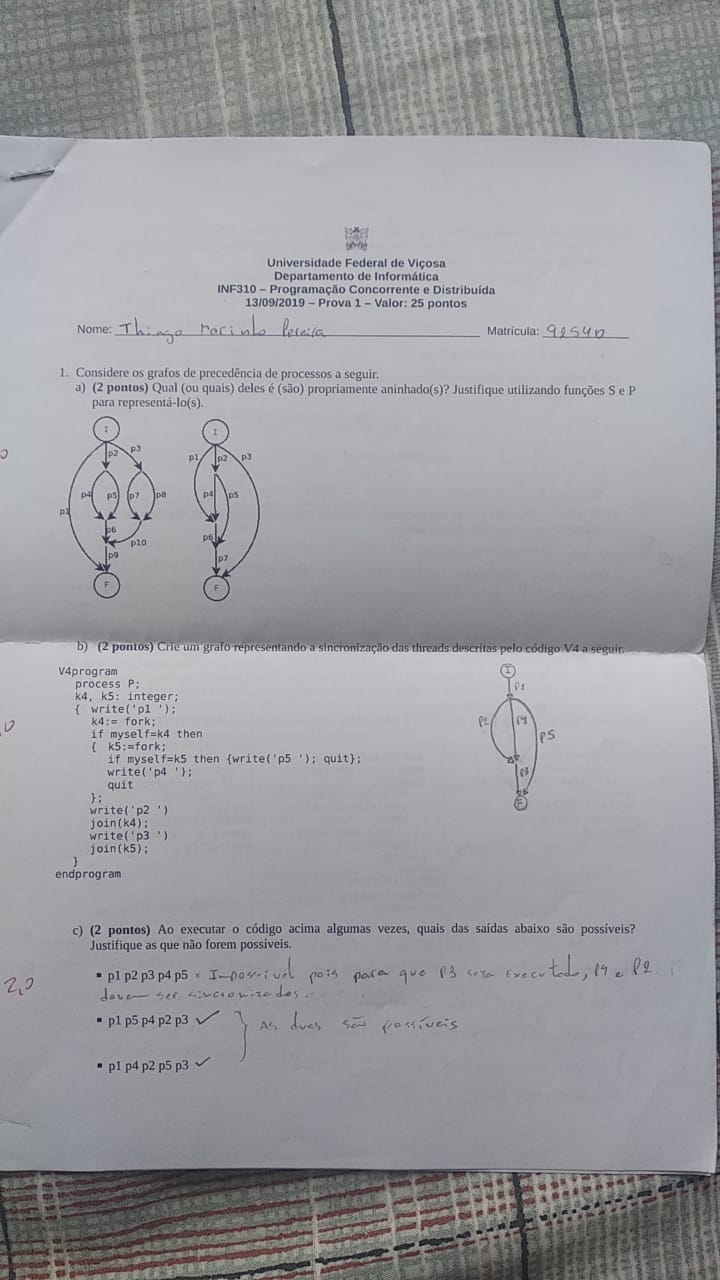 Universidade Federal de Viçosa
Departamento de Informática
INF310 – Programação Concorrente e Distribuída
13/09/2019 – Prova 1 – Valor: 25 pontos
Nome: Thiago Marinho Pereira Matrícula: 92540
1. Considere os grafos de precedência de processos a seguir.
a) (2 pontos) Qual (ou quais) deles é (são) propriamente aninhado(s)? Justifique utilizando funções S e P
para representá-lo(s).
I I
p2 p3 p1 p2 p3
p4 p5 p7 p8 p4 p5
p1
p6 p6
p10
p9 p7
F F
b) (2 pontos) Crie um grafo representando a sincronização das threads descritas pelo código V4 a seguir.
V4program
process P;
k4, k5: integer;
{ write('p1 ');
k4:= fork;
if myself=k4 then
{ k5:=fork;
if myself=k5 then {write('p5 '); quit};
write('p4 ');
quit
};
write('p2 ')
join(k4);
write('p3 ')
join(k5);
}
endprogram
I
P1
P2 P4 P5
P3
F
c) (2 pontos) Ao executar o código acima algumas vezes, quais das saídas abaixo são possíveis?
Justifique as que não forem possíveis.
2,0
▪ p1 p2 p3 p4 p5 x Impossível pois para que P3 seja executado, P4 e P2
devem ser sincronizados.
▪ p1 p5 p4 p2 p3 ✓ } As duas são possíveis
▪ p1 p4 p2 p5 p3 ✓